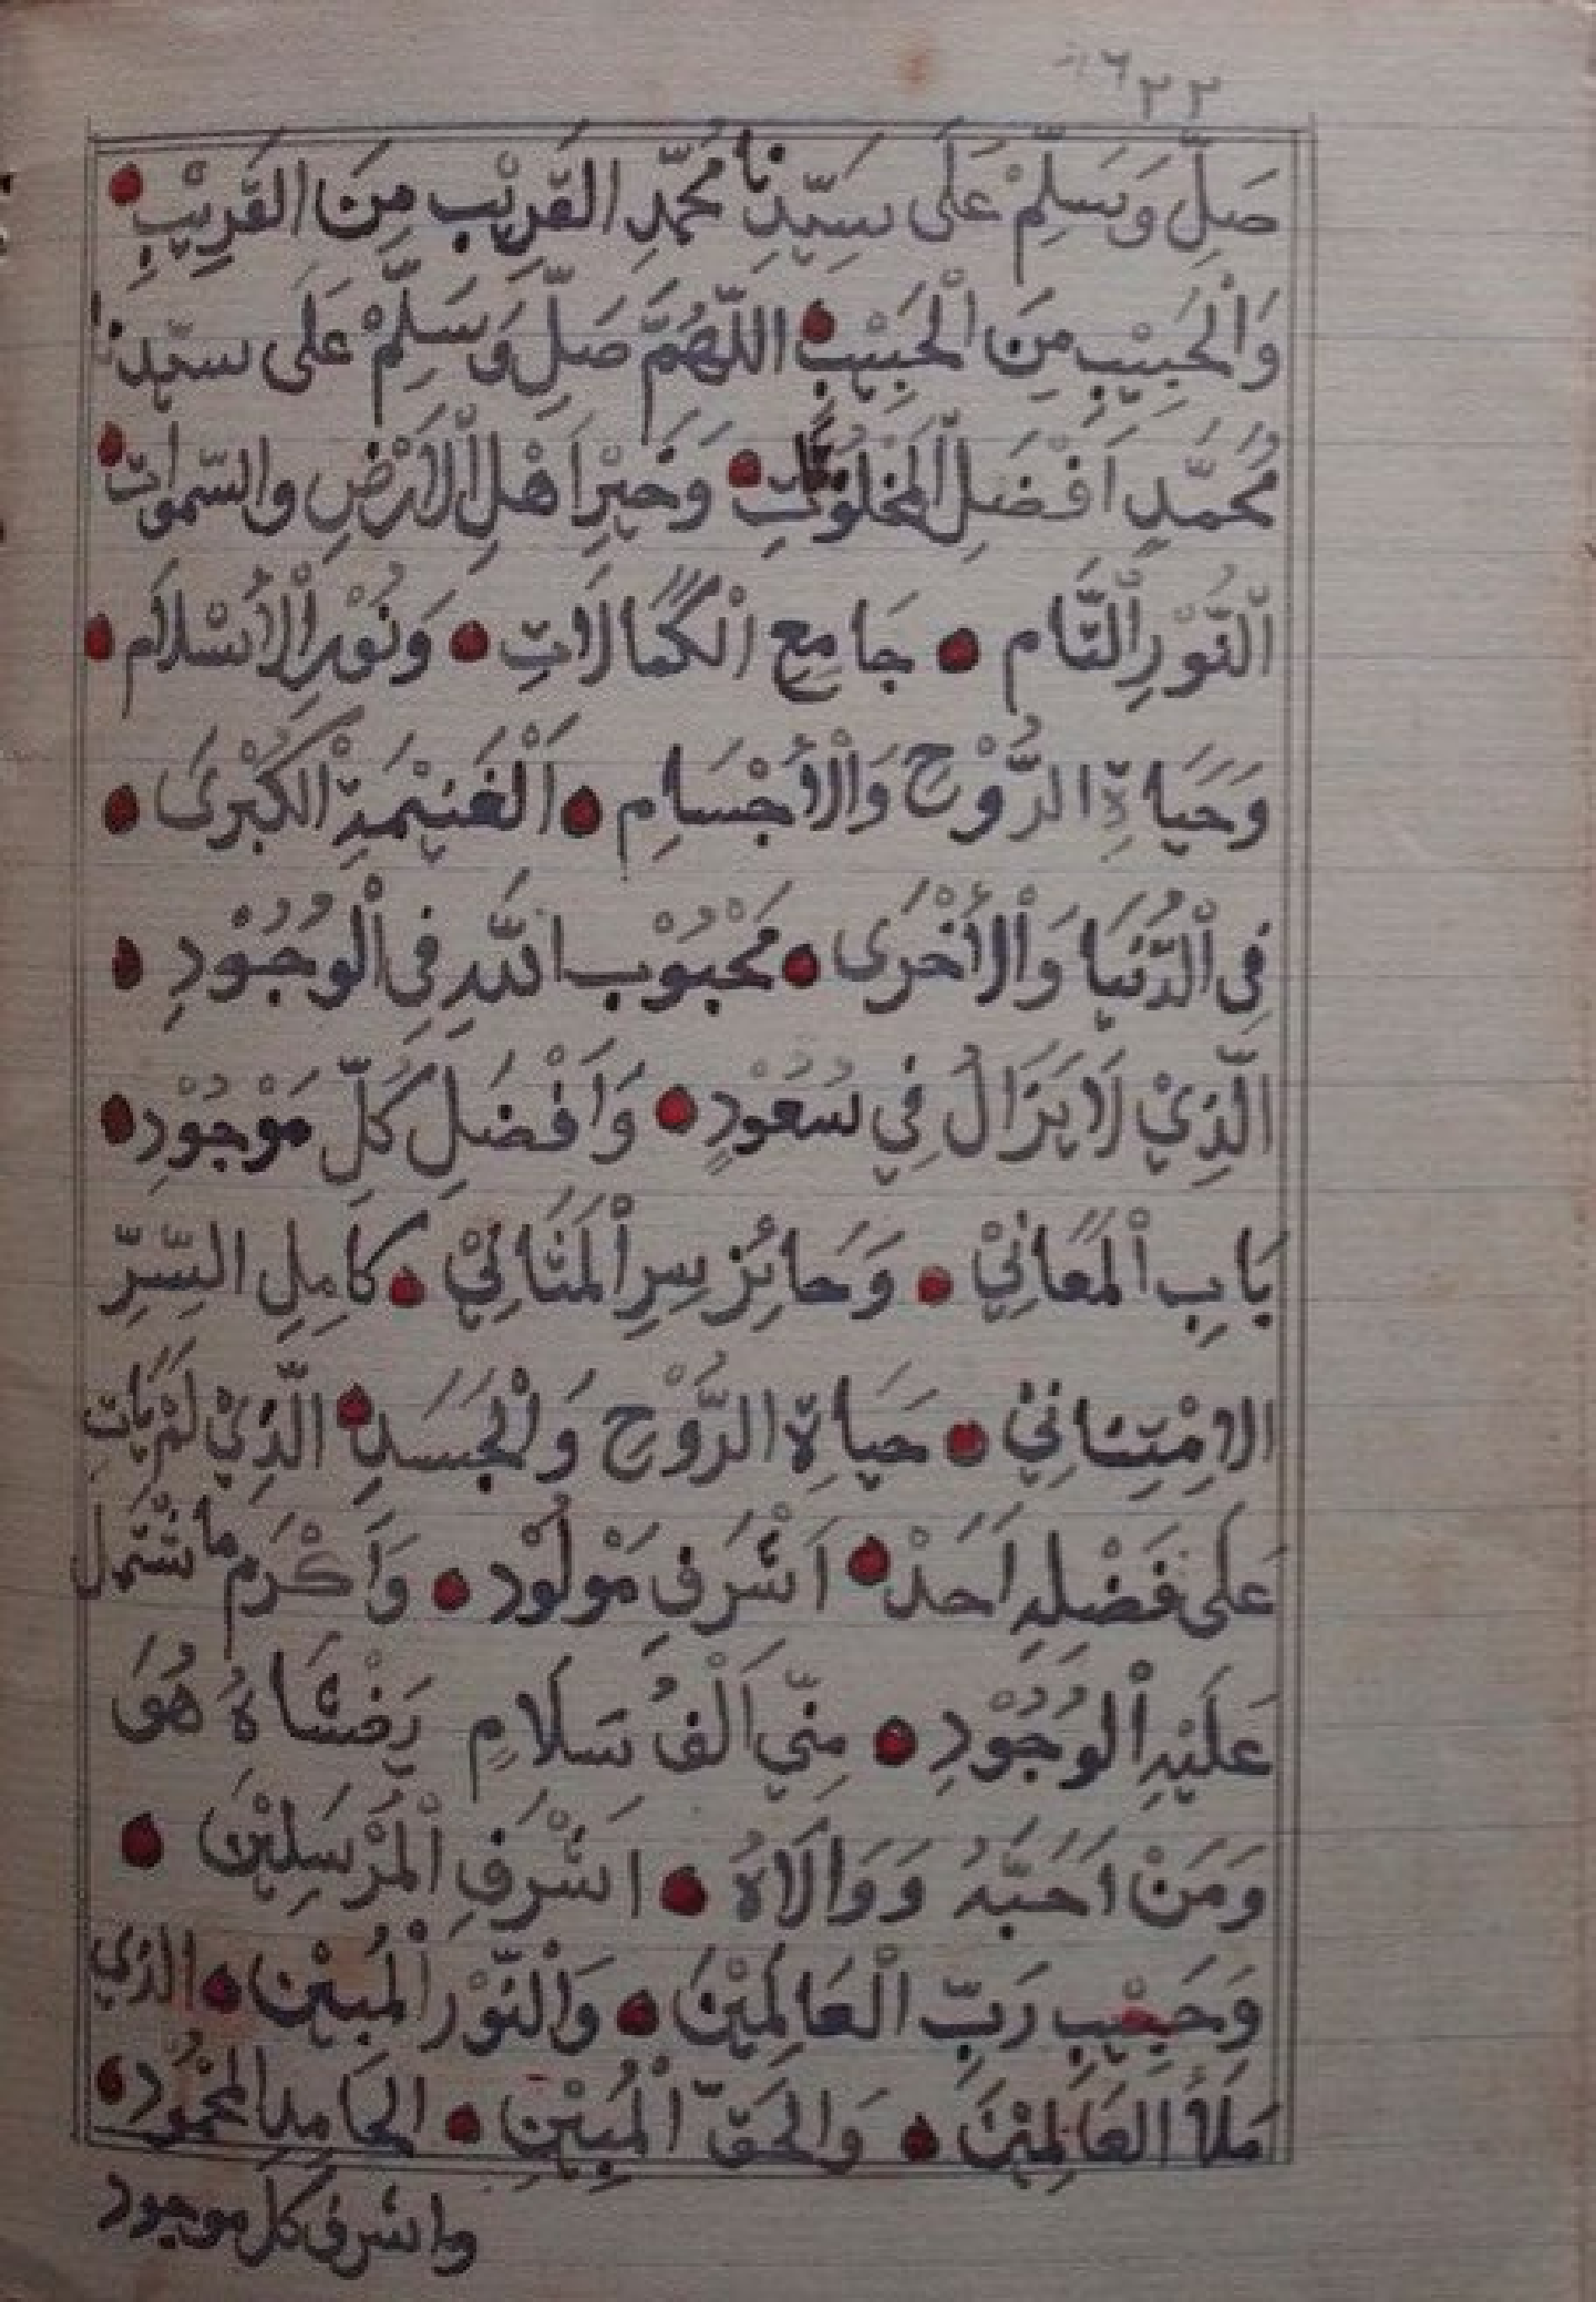 ٢٢
صَلِّ وَسَلِّمْ عَلَى سَيِّدِنَا مُحَمَّدِ القَرِيْبِ مِنَ القَرِيْبِ
وَالْحَبِيْبِ مِنَ الْحَبِيْبِ اللّهُمَّ صَلِّ وَسَلِّمْ عَلَى سيّدنا
مُحَمَّدٍ اَفْضَلِ الْمَخْلُوْقَاتِ وَخَيْرِ اَهْلِ الْاَرْضِ والسّموات
اَلنُّوْرِ الْتَّام جَامِعِ الْكَمَالَاتِ وَنُوْرِ الْاُسْلَام
وَحَيَاةِ الرُّوْحِ وَالْأَجْسَامِ اَلْغَنِيْمَةِ الْكُبْرَى
فِى الْدُّنْيَا وَالْأُخْرَى مَحْبُوْبِ اللّهِ فِى الْوُجُوْدِ
الَّذِيْ لَا يَزَالُ فِي سُعُوْدٍ وَاَفْضَلِ كُلِّ مَوْجُوْدٍ
بَابِ الْمَعَانِيْ وَحَائِزِ سِرِ الْمَثَانِيْ كَامِلِ السِّرِّ
الاِمْتِنَانِيْ حَيَاةِ الرُّوْحِ وَلْجَسَدِ الَّذِيْ لَمْ يَاتِ
عَلَى فَضْلِهِ اَحَدْ اَشْرَفِ مَوْلُوْد وَاَكْرَم ما شتمل
عَلَيْهِ الْوُجُوْدِ مِنّي اَلْفُ سَلَامٍ يَغْشَاهُ هُوَ
وَمَنْ اَحَبَّهُ وَوَالَاهُ اشْرَفِ الْمُرْسَلِيْنَ
وَحَبِيْبِ رَبِّ الْعَالَمِيْنَ وَالْنُّوْرِ الْمُبِيْنِ الذي
مَلَأَ العَالَمِيْنَ وَالحَقِّ الْمُبِيْنِ الحَامِدِ المَحْمُوْد
واشرف كل موجود